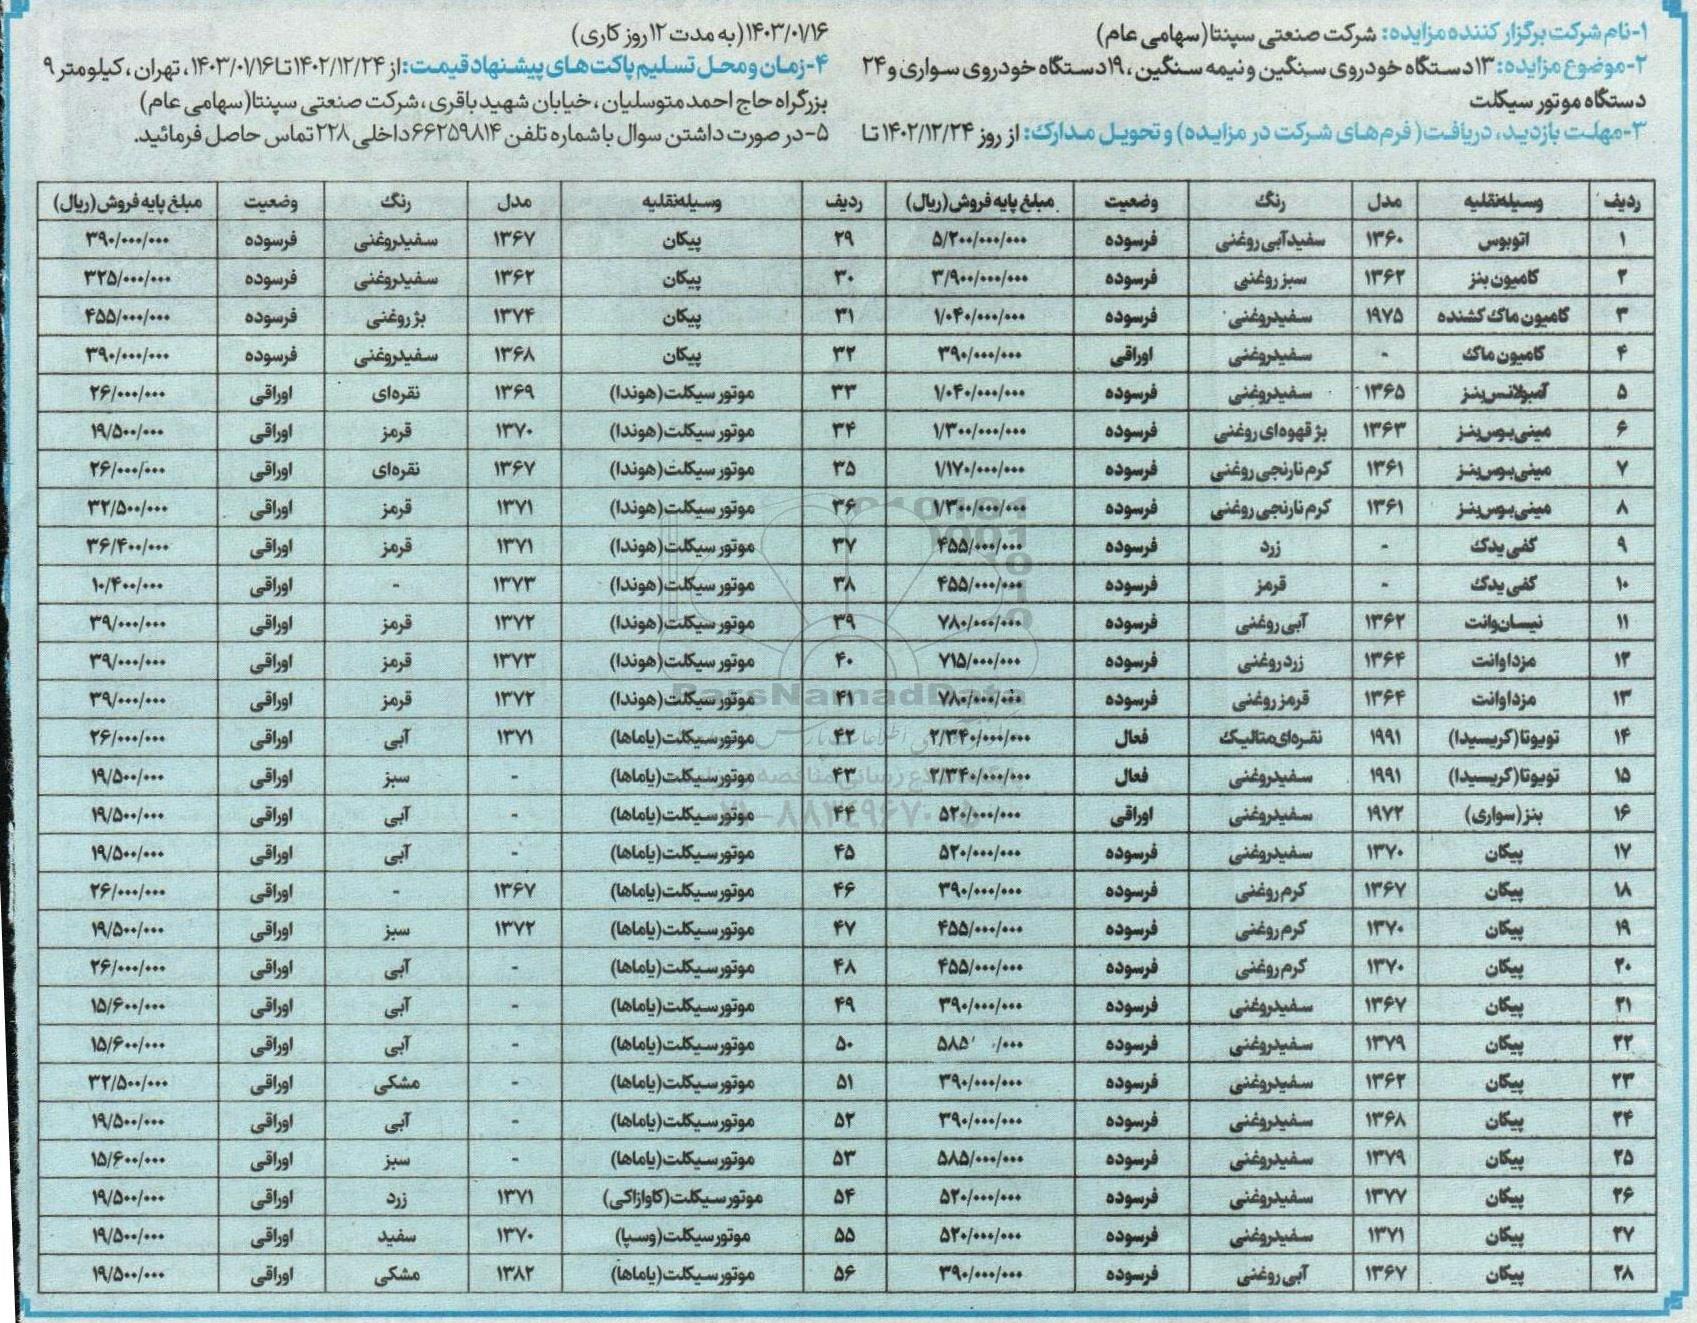 ۱-نام شرکت برگزار کننده مزایده: شرکت صنعتی سپنتا(سهامی عام)
۲-موضوع مزایده: ۱۳ دستگاه خودروی سنگین و نیمه سنگین ، ۱۹ دستگاه خودروی سواری و ۲۴
دستگاه موتور سیکلت
۳-مهلت بازدید، دریافت( فرم‌های شرکت در مزایده) و تحویل مدارک: از روز ۱۴۰۲/۱۲/۲۴ تا
۱۴۰۳/۰۱/۱۶(به مدت ۱۲ روز کاری)
۴-زمان و محل تسلیم پاکت‌های پیشنهاد قیمت: از ۱۴۰۲/۱۲/۲۴ تا ۱۴۰۳/۰۱/۱۶ ، تهران ، کیلومتر ۹
بزرگراه حاج احمد متوسلیان ، خیابان شهید باقری ، شرکت صنعتی سپنتا(سهامی عام)
۵-در صورت داشتن سوال با شماره تلفن ۶۶۲۵۹۸۱۴ داخلی ۲۲۸ تماس حاصل فرمائید.
ردیف وسیله‌نقلیه مدل رنگ وضعیت مبلغ پایه فروش(ریال) ردیف وسیله‌نقلیه مدل رنگ وضعیت مبلغ پایه فروش(ریال)
۱ اتوبوس ۱۳۶۰ سفیدآبی روغنی فرسوده ۵/۲۰۰/۰۰۰/۰۰۰ ۲۹ پیکان ۱۳۶۷ سفیدروغنی فرسوده ۳۹۰/۰۰۰/۰۰۰
۲ کامیون بنز ۱۳۶۲ سبز روغنی فرسوده ۳/۹۰۰/۰۰۰/۰۰۰ ۳۰ پیکان ۱۳۶۲ سفیدروغنی فرسوده ۳۲۵/۰۰۰/۰۰۰
۳ کامیون ماک کشنده ۱۹۷۵ سفیدروغنی فرسوده ۱/۰۴۰/۰۰۰/۰۰۰ ۳۱ پیکان ۱۳۷۴ بژ روغنی فرسوده ۴۵۵/۰۰۰/۰۰۰
۴ کامیون ماک - سفیدروغنی اوراقی ۳۹۰/۰۰۰/۰۰۰ ۳۲ پیکان ۱۳۶۸ سفیدروغنی فرسوده ۳۹۰/۰۰۰/۰۰۰
۵ آمبولانس بنز ۱۳۶۵ سفیدروغنی فرسوده ۱/۰۴۰/۰۰۰/۰۰۰ ۳۳ موتور سیکلت(هوندا) ۱۳۶۹ نقره‌ای اوراقی ۲۶/۰۰۰/۰۰۰
۶ مینی‌بوس بنز ۱۳۶۳ بژ قهوه‌ای روغنی فرسوده ۱/۳۰۰/۰۰۰/۰۰۰ ۳۴ موتور سیکلت(هوندا) ۱۳۷۰ قرمز اوراقی ۱۹/۵۰۰/۰۰۰
۷ مینی‌بوس بنز ۱۳۶۱ کرم نارنجی روغنی فرسوده ۱/۱۷۰/۰۰۰/۰۰۰ ۳۵ موتور سیکلت(هوندا) ۱۳۶۷ نقره‌ای اوراقی ۲۶/۰۰۰/۰۰۰
۸ مینی‌بوس بنز ۱۳۶۱ کرم نارنجی روغنی فرسوده ۱/۳۰۰/۰۰۰/۰۰۰ ۳۶ موتور سیکلت(هوندا) ۱۳۷۱ قرمز اوراقی ۳۲/۵۰۰/۰۰۰
۹ کفی یدک - زرد فرسوده ۴۵۵/۰۰۰/۰۰۰ ۳۷ موتور سیکلت(هوندا) ۱۳۷۱ قرمز اوراقی ۳۶/۴۰۰/۰۰۰
۱۰ کفی یدک - قرمز فرسوده ۴۵۵/۰۰۰/۰۰۰ ۳۸ موتور سیکلت(هوندا) ۱۳۷۳ - اوراقی ۱۰/۴۰۰/۰۰۰
۱۱ نیسان‌وانت ۱۳۶۲ آبی روغنی فرسوده ۷۸۰/۰۰۰/۰۰۰ ۳۹ موتور سیکلت(هوندا) ۱۳۷۲ قرمز اوراقی ۳۹/۰۰۰/۰۰۰
۱۲ مزداوانت ۱۳۶۴ زرد روغنی فرسوده ۷۱۵/۰۰۰/۰۰۰ ۴۰ موتور سیکلت(هوندا) ۱۳۷۳ قرمز اوراقی ۳۹/۰۰۰/۰۰۰
۱۳ مزداوانت ۱۳۶۴ قرمز روغنی فرسوده ۷۸۰/۰۰۰/۰۰۰ ۴۱ موتور سیکلت(هوندا) ۱۳۷۲ قرمز اوراقی ۳۹/۰۰۰/۰۰۰
۱۴ تویوتا(کریسیدا) ۱۹۹۱ نقره‌ای متالیک فعال ۲/۳۴۰/۰۰۰/۰۰۰ ۴۲ موتور سیکلت(یاماها) ۱۳۷۱ آبی اوراقی ۲۶/۰۰۰/۰۰۰
۱۵ تویوتا(کریسیدا) ۱۹۹۱ سفیدروغنی فعال ۲/۳۴۰/۰۰۰/۰۰۰ ۴۳ موتور سیکلت(یاماها) - سبز اوراقی ۱۹/۵۰۰/۰۰۰
۱۶ بنز(سواری) ۱۹۷۲ سفیدروغنی اوراقی ۵۲۰/۰۰۰/۰۰۰ ۴۴ موتور سیکلت(یاماها) - آبی اوراقی ۱۹/۵۰۰/۰۰۰
۱۷ پیکان ۱۳۷۰ سفیدروغنی فرسوده ۵۲۰/۰۰۰/۰۰۰ ۴۵ موتور سیکلت(یاماها) - آبی اوراقی ۱۹/۵۰۰/۰۰۰
۱۸ پیکان ۱۳۶۷ کرم روغنی فرسوده ۳۹۰/۰۰۰/۰۰۰ ۴۶ موتور سیکلت(یاماها) ۱۳۶۷ - اوراقی ۲۶/۰۰۰/۰۰۰
۱۹ پیکان ۱۳۷۰ کرم روغنی فرسوده ۴۵۵/۰۰۰/۰۰۰ ۴۷ موتور سیکلت(یاماها) ۱۳۷۲ سبز اوراقی ۱۹/۵۰۰/۰۰۰
۲۰ پیکان ۱۳۷۰ کرم روغنی فرسوده ۴۵۵/۰۰۰/۰۰۰ ۴۸ موتور سیکلت(یاماها) - آبی اوراقی ۲۶/۰۰۰/۰۰۰
۲۱ پیکان ۱۳۶۷ سفیدروغنی فرسوده ۳۹۰/۰۰۰/۰۰۰ ۴۹ موتور سیکلت(یاماها) - آبی اوراقی ۱۵/۶۰۰/۰۰۰
۲۲ پیکان ۱۳۷۹ سفیدروغنی فرسوده ۵۸۵ /۰۰۰ ۵۰ موتور سیکلت(یاماها) - آبی اوراقی ۱۵/۶۰۰/۰۰۰
۲۳ پیکان ۱۳۶۲ سفیدروغنی فرسوده ۳۹۰/۰۰۰/۰۰۰ ۵۱ موتور سیکلت(یاماها) - مشکی اوراقی ۳۲/۵۰۰/۰۰۰
۲۴ پیکان ۱۳۶۸ سفیدروغنی فرسوده ۳۹۰/۰۰۰/۰۰۰ ۵۲ موتور سیکلت(یاماها) - آبی اوراقی ۱۹/۵۰۰/۰۰۰
۲۵ پیکان ۱۳۷۹ سفیدروغنی فرسوده ۵۸۵/۰۰۰/۰۰۰ ۵۳ موتور سیکلت(یاماها) - سبز اوراقی ۱۵/۶۰۰/۰۰۰
۲۶ پیکان ۱۳۷۷ سفیدروغنی فرسوده ۵۲۰/۰۰۰/۰۰۰ ۵۴ موتور سیکلت(کاوازاکی) ۱۳۷۱ زرد اوراقی ۱۹/۵۰۰/۰۰۰
۲۷ پیکان ۱۳۷۱ سفیدروغنی فرسوده ۵۲۰/۰۰۰/۰۰۰ ۵۵ موتور سیکلت(وسپا) ۱۳۷۰ سفید اوراقی ۱۹/۵۰۰/۰۰۰
۲۸ پیکان ۱۳۶۷ آبی روغنی فرسوده ۳۹۰/۰۰۰/۰۰۰ ۵۶ موتور سیکلت(یاماها) ۱۳۸۲ مشکی اوراقی ۱۹/۵۰۰/۰۰۰
ParsNamadData